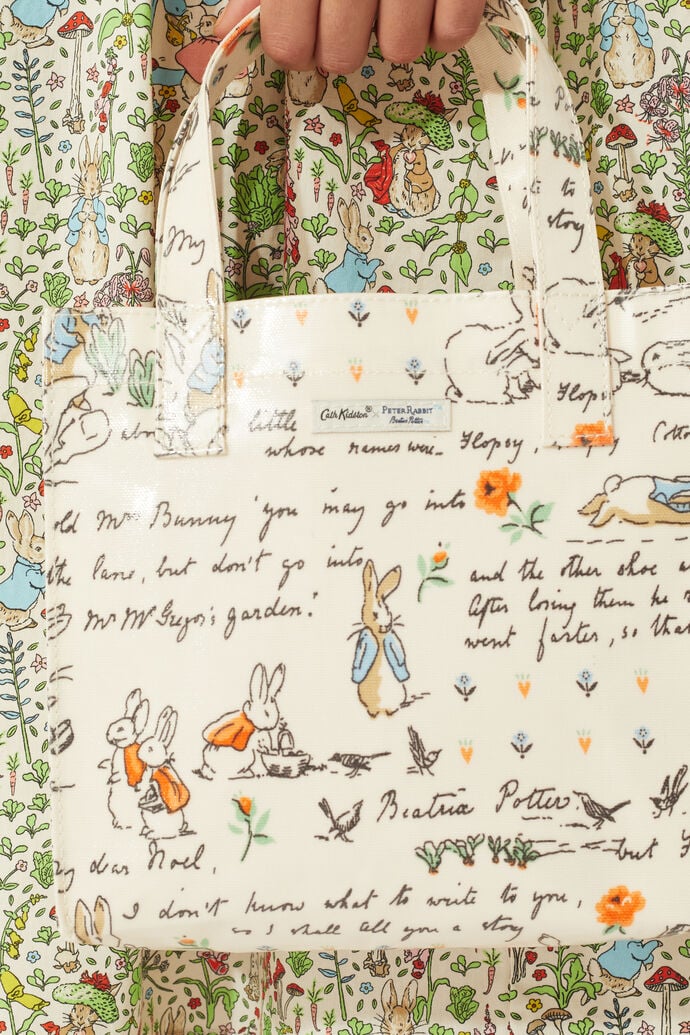 My
to
story
Cath Kidston® × PETER RABBIT
Beatrix Potter
little
whose names were— Flopsy,
Flops
Cotto
old Mrs Bunny 'you may go into
the lane, but don't go into
Mr McGregor's garden.'
and the other shoe a
After losing them he r
went faster, so that
Beatrix Potter
my dear Noel,
but F
I don't know what to write to you,
so I shall tell you a story